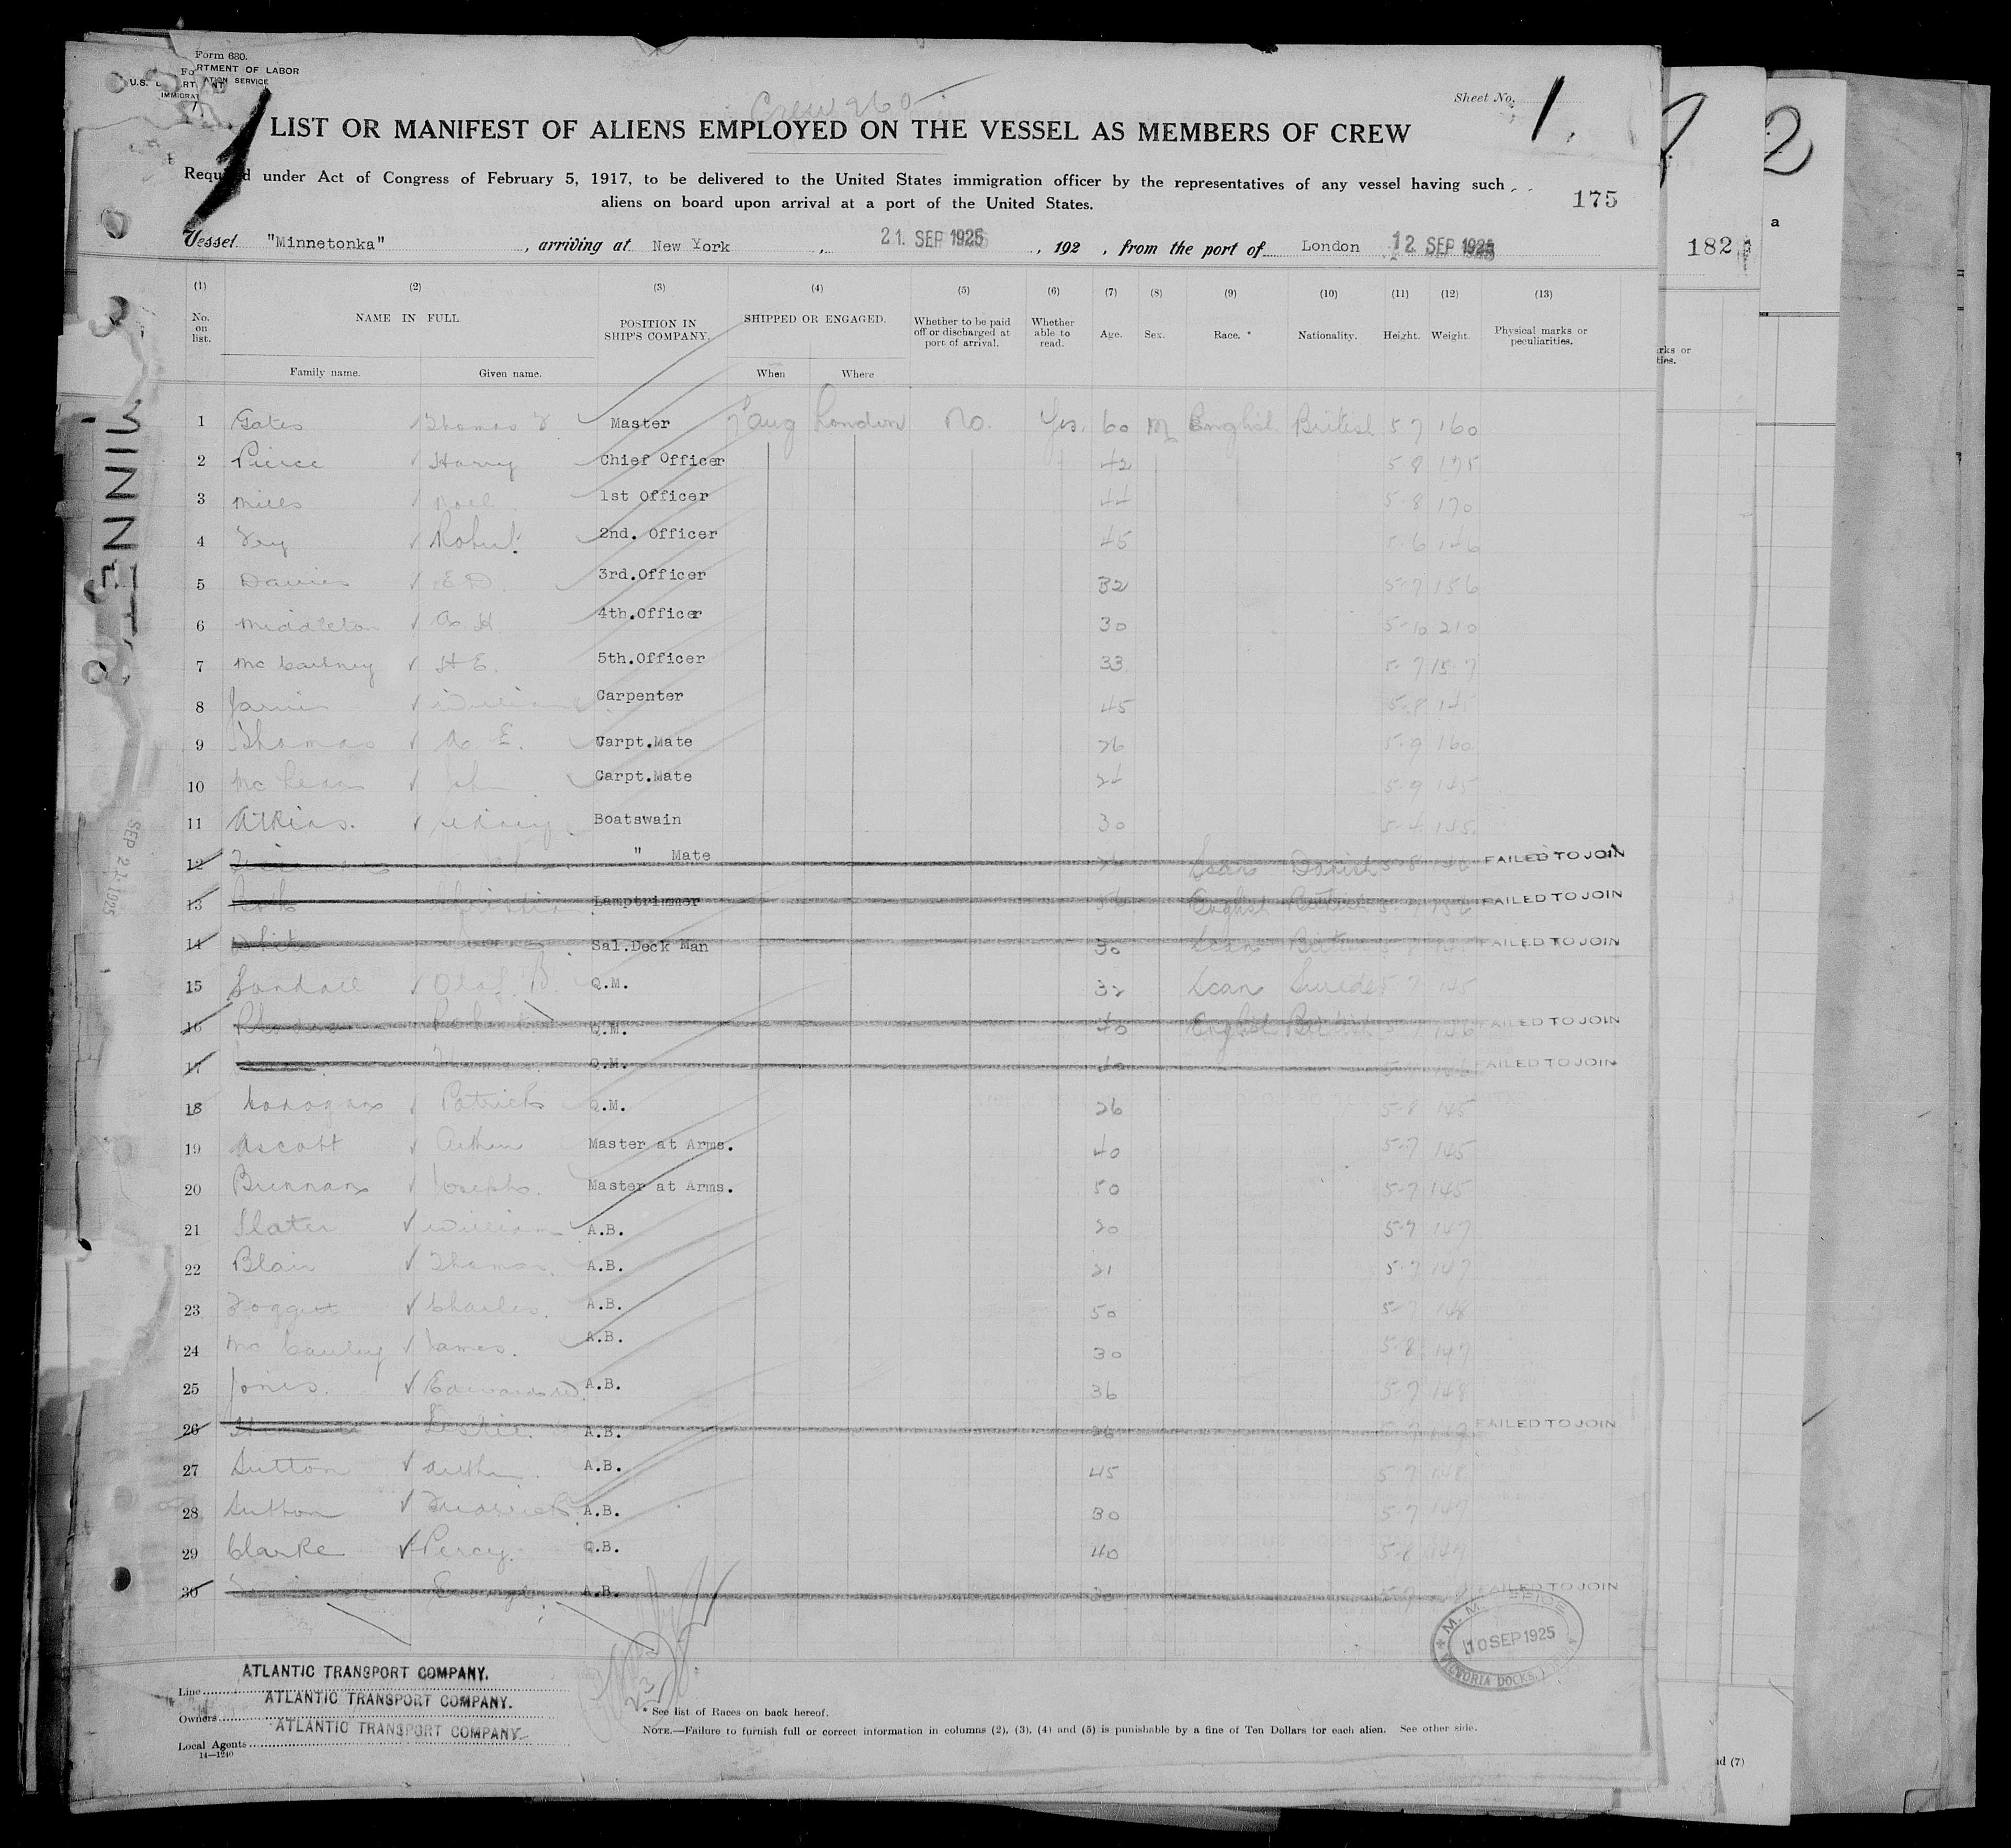 Form 680.
RTMENT OF LABOR
U.S.
IMMIGRAT
ATION SERVICE
Crew 260
Sheet No. 1.
LIST OR MANIFEST OF ALIENS EMPLOYED ON THE VESSEL AS MEMBERS OF CREW
under Act of Congress of February 5, 1917, to be delivered to the United States immigration officer by the representatives of any vessel having such
aliens on board upon arrival at a port of the United States.
175
Vessel "Minnetonka", arriving at New York, 21. SEP 1925, 192 , from the port of London 12 SEP 1925
182
(1) (2) (3) (4) (5) (6) (7) (8) (9) (10) (11) (12) (13)
No. on list. NAME IN FULL. POSITION IN SHIP'S COMPANY. SHIPPED OR ENGAGED. Whether to be paid off or discharged at port of arrival. Whether able to read. Age. Sex. Race. * Nationality. Height. Weight. Physical marks or peculiarities.
Family name. Given name. When Where
1 Gates Thomas F Master Aug London No. Yes. 60 M English British 5 7 160
2 Pierce Harry Chief Officer 42 5 8 175
3 Mills Noel 1st Officer 44 5-8 170
4 Robert 2nd. Officer 45 5-6 146
5 Davies E D. 3rd.Officer 32 5-7 156
6 Middleton H 4th.Officer 30 5-10 210
7 McCartney H E. 5th.Officer 33 5-7 157
8 Jarvis William Carpenter 45 5-8
9 Thomas E. Carpt.Mate 26 5-9 160
10 McLean John Carpt.Mate 24 5-9 145
11 Atkins. Sidney Boatswain 30 5-4 145
12 " Mate Scan Danish FAILED TO JOIN
13 Christian Lamptrimmer English British FAILED TO JOIN
14 White Sal.Deck Man 30 Scan FAILED TO JOIN
15 Sandall Olaf. B. Q.M. 32 Scan Swede 5 7 145
16 Q.M. 40 English British FAILED TO JOIN
17 Q.M. 40 FAILED TO JOIN
18 Patrick Q.M. 26 5-8 145
19 Ascott Arthur Master at Arms. 40 5-7 145
20 Brennan Joseph. Master at Arms. 50 5-7 145
21 Slater William A.B. 20 5-7 147
22 Blair Thomas. A.B. 21 5-7 147
23 Foggett Charles. A.B. 50 5-7 148
24 McCauley James. A.B. 30 5-8 147
25 Jones. Edward W. A.B. 36 5-7 148
26 Leslie. A.B. 26 5-7 FAILED TO JOIN
27 Sutton Arthur. A.B. 45 5-7 148
28 Sutton Frederick A.B. 30 5-7 147
29 Clarke Percy. Q.B. 40 5-8 147
30 George A.B. 30 5-7 FAILED TO JOIN
SEP 21 1925
10 SEP 1925
VICTORIA DOCKS.
Line ATLANTIC TRANSPORT COMPANY.
Owners ATLANTIC TRANSPORT COMPANY.
Local Agents ATLANTIC TRANSPORT COMPANY.
14—1240
* See list of Races on back hereof.
NOTE.—Failure to furnish full or correct information in columns (2), (3), (4) and (5) is punishable by a fine of Ten Dollars for each alien. See other side.